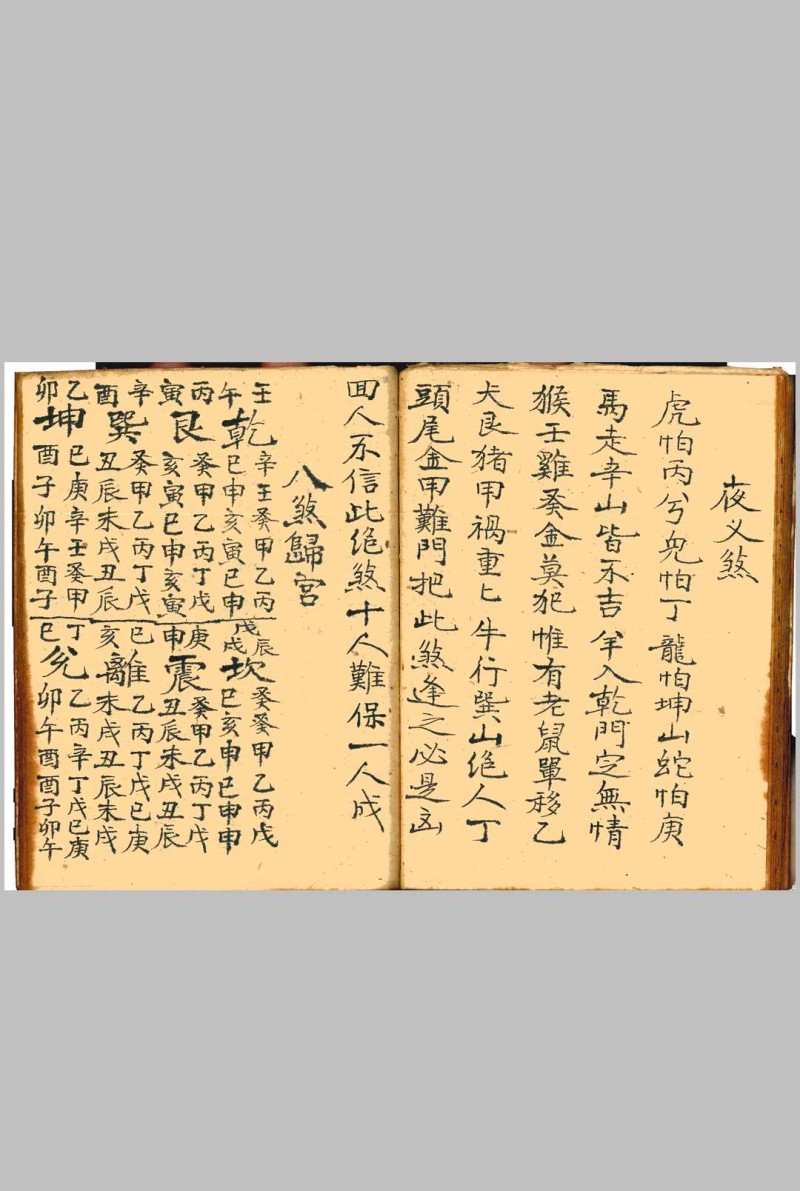 夜义煞
虎怕丙兮兔怕丁龍怕坤山蛇怕庚
馬走辛山皆不吉羊入乾門定無情
猴壬雞癸金莫犯惟有老鼠單移乙
犬艮猪甲禍重匕牛行巽山绝人丁
頭尾金甲難門把此煞逢之必是凶
田人不信此绝煞十人難保一人成
八煞歸宮
壬午乾
辛壬癸甲乙丙
巳申亥寅巳申
丙寅艮
癸甲乙丙丁戊
亥寅巳申亥寅
辛酉巽
癸甲乙丙丁戊
丑辰未戌丑辰
乙卯坤
巳庚辛壬癸甲
酉子卯午酉子
戊辰戊戌坎
癸癸甲乙丙戊
巳亥申巳申申
庚申震
癸甲乙丙丁戊
丑辰未戌丑辰
巳亥離
乙丙丁戊巳庚
未戌丑辰未戌
丁巳兌
乙丙辛丁戊巳庚
卯午酉酉子卯午